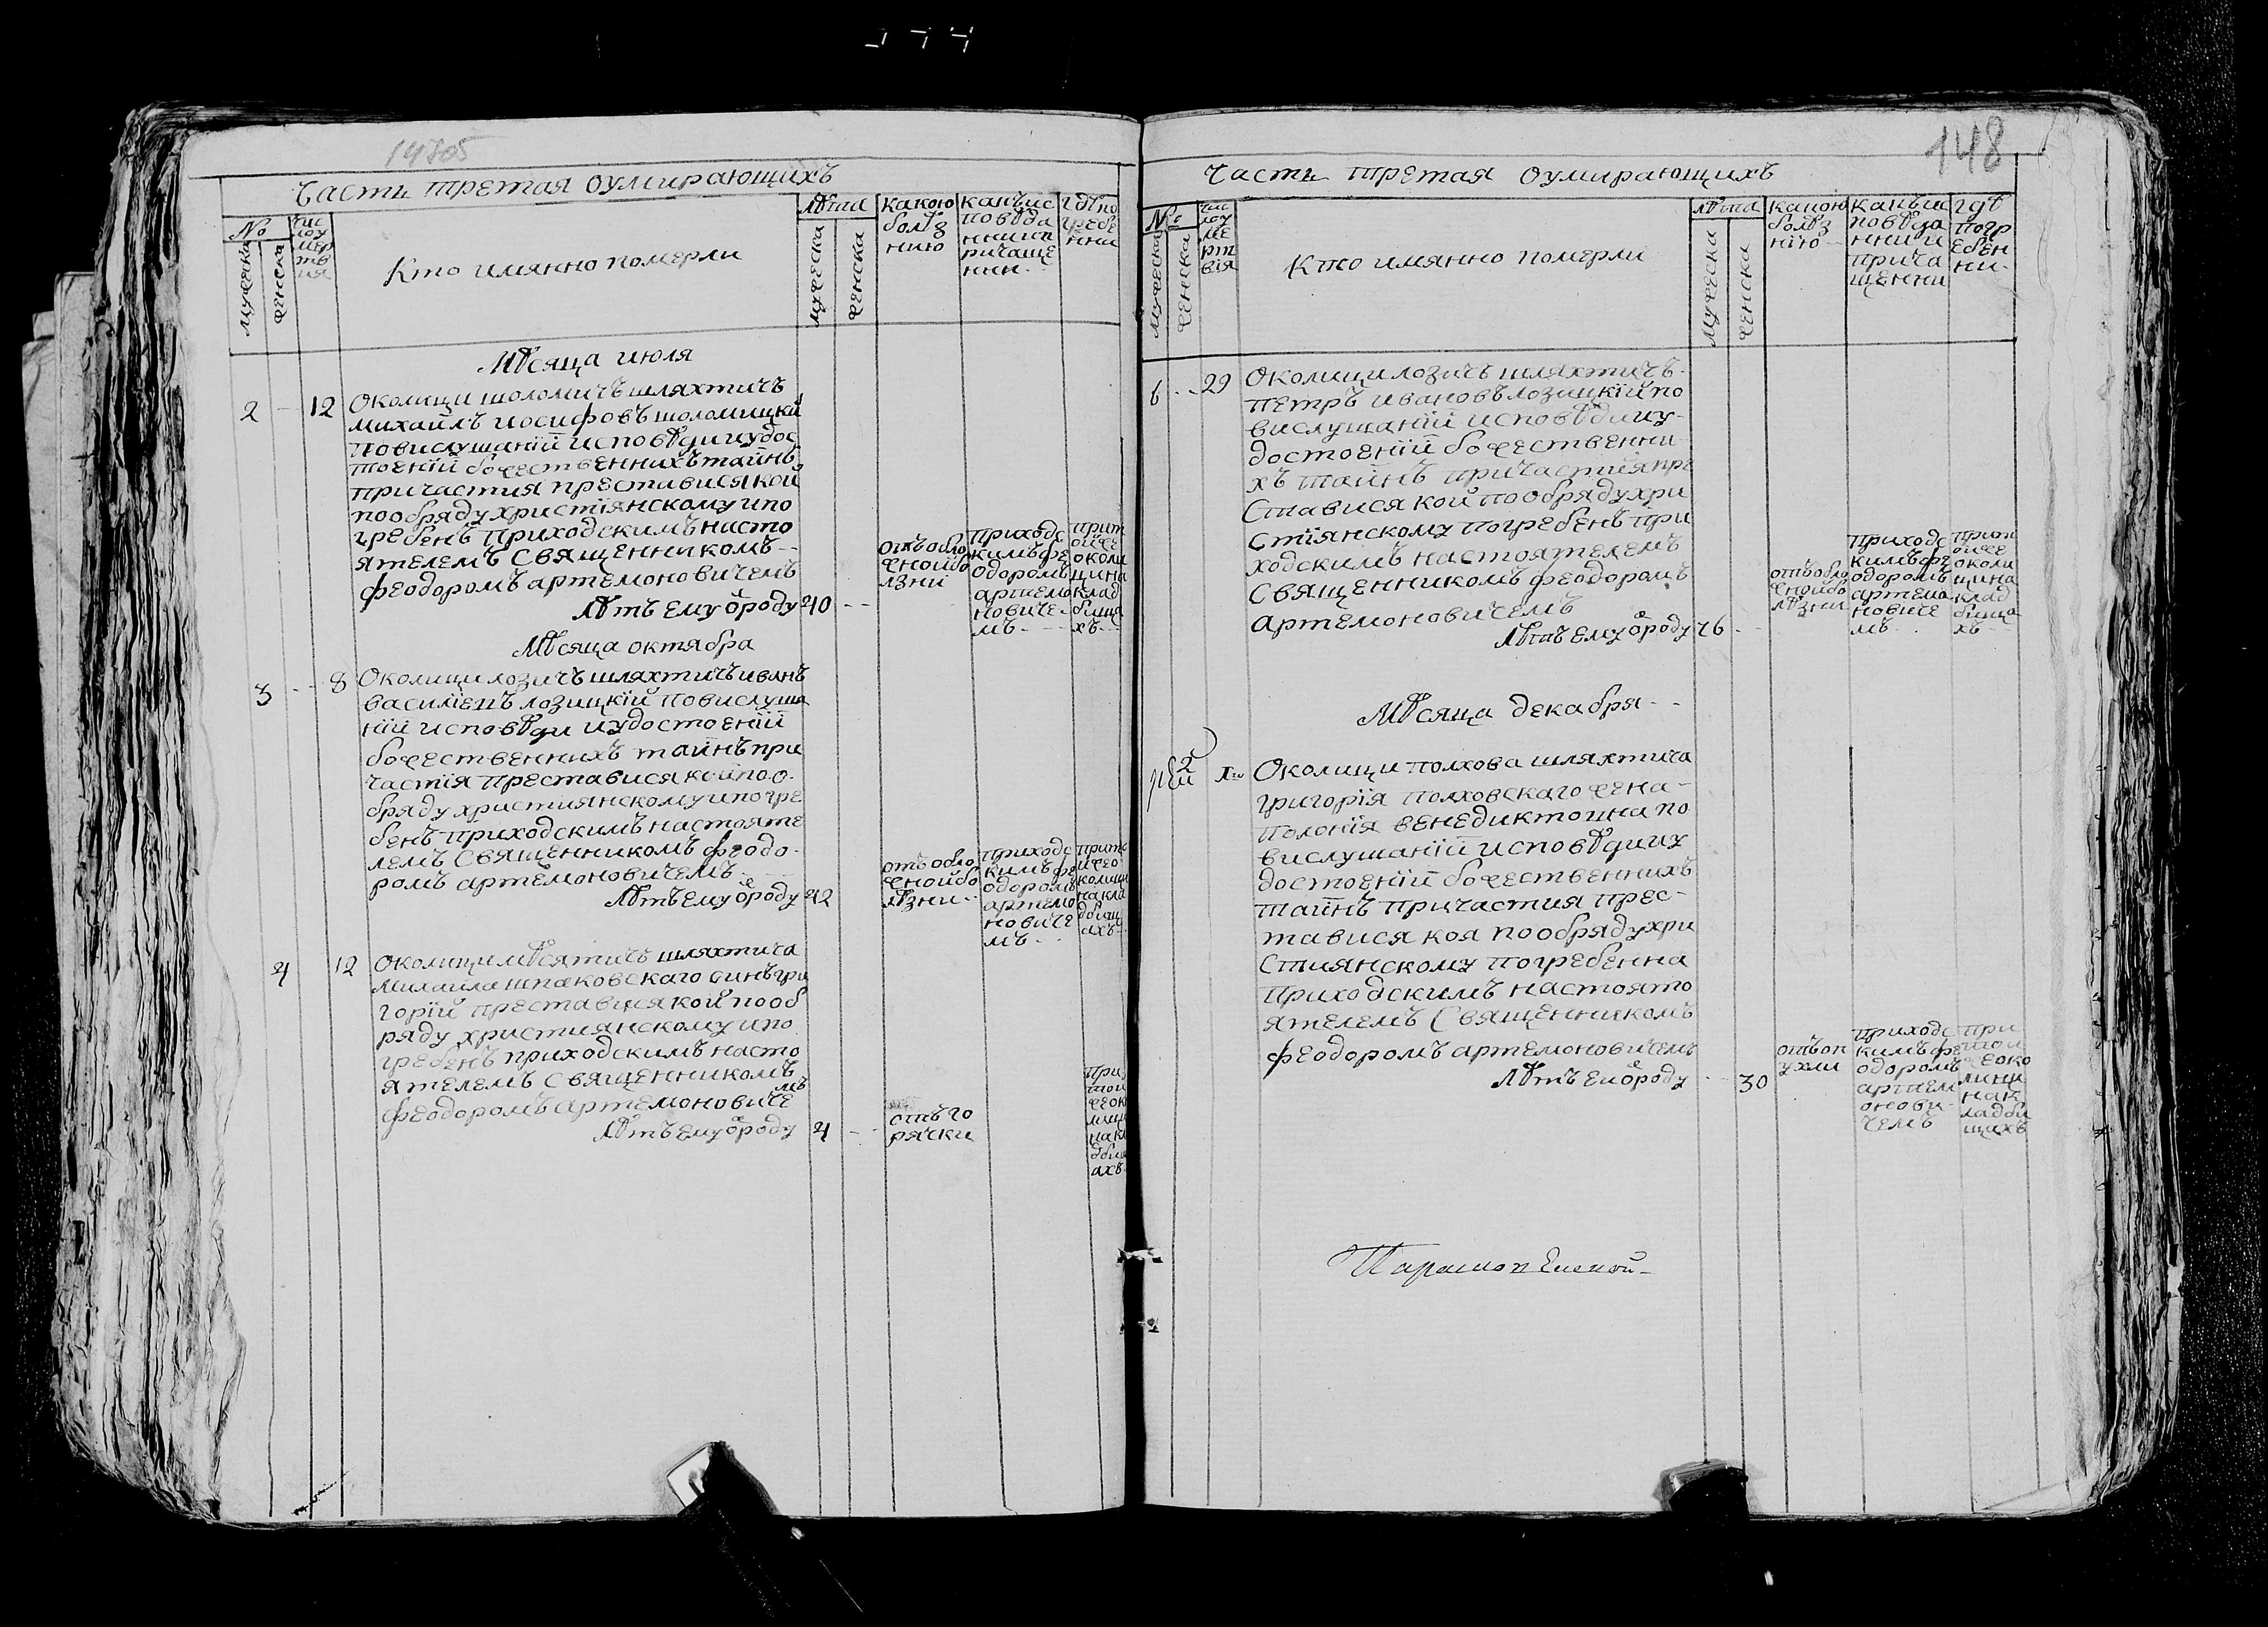 14705
Часть третая оумирающихъ
№
мужеска
женска
чис
лоу
мер
тв
ия
Кто имянно померли
лѣта
мужеска
женска
какою
болѣз
нию
канъис
повѣда
нниип
ричаще
нни
гдѣ по
гребе
нни
Мѣсяца июля
2 - 12 Околици шоломичъ шляхтичъ
михайлъ иосифовъ шоломицкий
повислушаний исповѣди иудос
тоений божественнихъ тайнъ
причастия преставися кой
пообряду християнскому ипо
гребенъ приходскимъ насто
ятелемъ священникомъ
феодоромъ артемоновичемъ
Лѣтъ ему ѿроду 40
отъ обло
жнойбо
лѣзни
приходс
кимъ фе
одоромъ
артемо
новиче
мъ
прит
ойже
околи
цина
клад
бища
хъ
Мѣсяца октября
3 - 8 Околици лозичъ шляхтичъ иванъ
василіевъ лозицкій по вислуша
ній исповѣди иудостоеній
божественнихъ тайнъ при
частія преставися кой поо
бряду християнскому ипогре
бенъ приходскимъ настояте
лемъ священникомъ феодо
ромъ артемоновичемъ
Лѣтъ ему ѿроду 42
отъ обло
жнойбо
лѣзни
приходс
кимъ фе
одоромъ
артемо
новиче
мъ
прито
йжео
колици
накла
дбищ
ахъ
4 12 Околици мѣсятичъ шляхтича
михаила шпаковскаго синъ гри
горій преставися кой пооб
ряду християнскому ипо
гребенъ приходскимъ насто
ятелемъ священникомъ
феодоромъ артемоновиче
мъ
Лѣтъ ему ѿроду 4
отъ го
рячки
при
той
жеок
лици
накл
дбищ
ахъ
148
Часть третая оумирающихъ
№
мужеска
женска
чис
лоу
ме
рт
вія
Кто имянно померли
лѣта
мужеска
женска
какою
болѣз
нію
канъис
повѣда
нни и
прича
щенни
гдѣ
погр
ебен
ни
6 - 29 Околици лозичъ шляхтичъ
петръ ивановъ лозицкій по
вислушаній исповѣди иу
достоеній божественни
хъ тайнъ причастія пре
ставися кой по обряду хри
стіянскому погребенъ при
ходскимъ настоятелемъ
священникомъ феодоромъ
артемоновичемъ
Лѣтъ ему ѿроду 76
отъ обло
жнойбо
лѣзни
приходс
кимъ фе
одоромъ
артемо
новиче
мъ
прит
ойже
околи
цина
клад
бища
хъ
Мѣсяца декабря
2
Околици полхова шляхтича
григорія полховскаго жена
полонія венедиктовна по
вислушаній исповѣди иу
достоеній божественнихъ
тайнъ причастия прес
тавися коя по обряду хри
стиянскому погребенна
приходскимъ настоято
ятелемъ священникомъ
феодоромъ артемоновичемъ
Лѣтъ ей ѿроду 30
отъ оп
ухли
приходс
кимъ фе
одоромъ
артем
онови
чемъ
при
той
жеоко
лици
нак
ладби
щахъ